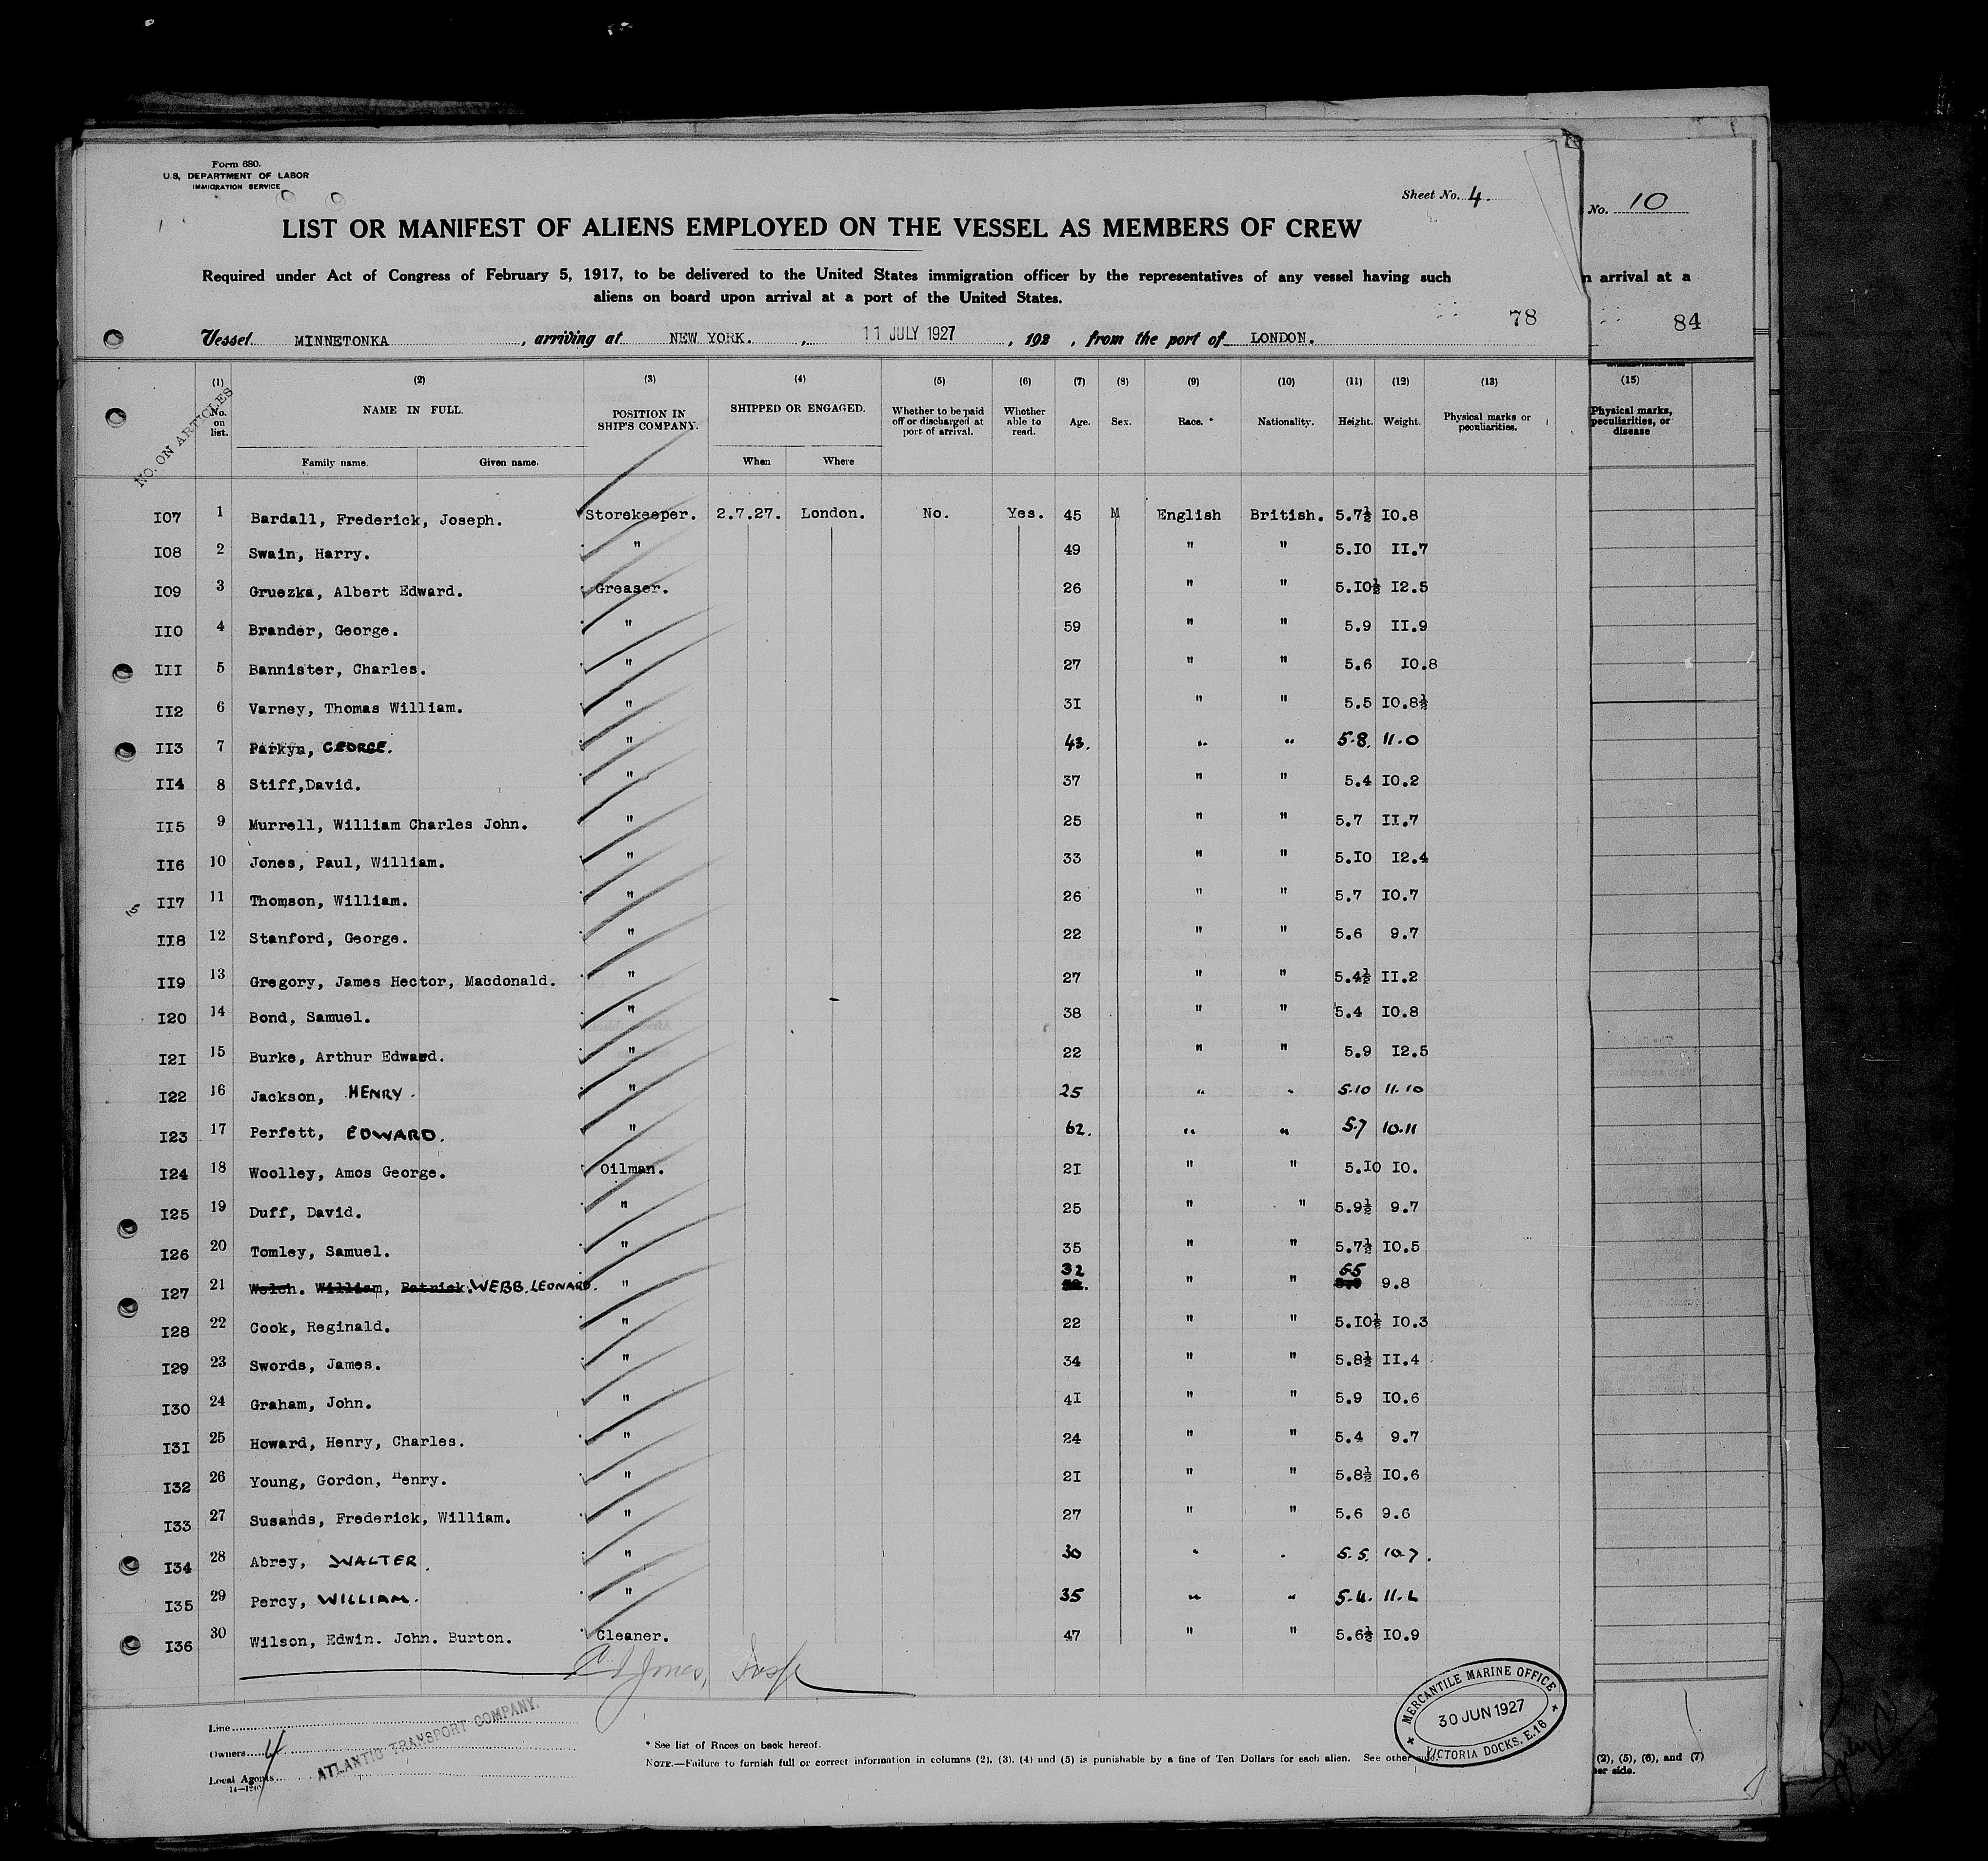 Form 680.
U.S. DEPARTMENT OF LABOR
IMMIGRATION SERVICE
Sheet No. 4.
No. 10
LIST OR MANIFEST OF ALIENS EMPLOYED ON THE VESSEL AS MEMBERS OF CREW
Required under Act of Congress of February 5, 1917, to be delivered to the United States immigration officer by the representatives of any vessel having such
aliens on board upon arrival at a port of the United States.
n arrival at a
78
84
Vessel MINNETONKA, arriving at NEW YORK., 11 JULY 1927, 192 , from the port of LONDON.
NO. ON ARTICLES
(1) (2) (3) (4) (5) (6) (7) (8) (9) (10) (11) (12) (13) (15)
No. on list. NAME IN FULL. POSITION IN SHIP'S COMPANY. SHIPPED OR ENGAGED. Whether to be paid off or discharged at port of arrival. Whether able to read. Age. Sex. Race. * Nationality. Height. Weight. Physical marks or peculiarities. Physical marks, peculiarities, or disease
Family name. Given name. When Where
I07 1 Bardall, Frederick, Joseph. Storekeeper. 2.7.27. London. No. Yes. 45 M English British. 5.7½ I0.8
I08 2 Swain, Harry. " 49 " " 5.I0 II.7
I09 3 Gruezka, Albert Edward. Greaser. 26 " " 5.I0½ I2.5
II0 4 Brander, George. " 59 " " 5.9 II.9
III 5 Bannister, Charles. " 27 " " 5.6 I0.8
II2 6 Varney, Thomas William. " 3I " " 5.5 I0.8½
II3 7 Parkyn, GEORGE. " 43. " " 5.8. 11.0
II4 8 Stiff,David. " 37 " " 5.4 I0.2
II5 9 Murrell, William Charles John. " 25 " " 5.7 II.7
II6 10 Jones, Paul, William. " 33 " " 5.I0 I2.4
II7 11 Thomson, William. " 26 " " 5.7 I0.7
II8 12 Stanford, George. " 22 " " 5.6 9.7
II9 13 Gregory, James Hector, Macdonald. " 27 " " 5.4½ II.2
I20 14 Bond, Samuel. " 38 " " 5.4 I0.8
I2I 15 Burke, Arthur Edward. " 22 " " 5.9 I2.5
I22 16 Jackson, HENRY. " 25 " " 5.10 11.10
I23 17 Perfett, EDWARD. " 62. " " 5.7 10.11
I24 18 Woolley, Amos George. Oilman. 2I " " 5.I0 I0.
I25 19 Duff, David. " 25 " " 5.9½ 9.7
I26 20 Tomley, Samuel. " 35 " " 5.7½ I0.5
I27 21 Welch. William, Patrick. WEBB. LEONARD. " 32 " " 5.5 9.8
I28 22 Cook, Reginald. " 22 " " 5.I0½ I0.3
I29 23 Swords, James. " 34 " " 5.8½ II.4
I30 24 Graham, John. " 4I " " 5.9 I0.6
I3I 25 Howard, Henry, Charles. " 24 " " 5.4 9.7
I32 26 Young, Gordon, Henry. " 2I " " 5.8½ I0.6
I33 27 Susands, Frederick, William. " 27 " " 5.6 9.6
I34 28 Abrey, WALTER. " 30 " " 5.5. 10.7.
I35 29 Percy, WILLIAM. " 35 " " 5.4.
I36 30 Wilson, Edwin. John. Burton. Cleaner. 47 " " 5.6½ I0.9
Jones,
MERCANTILE MARINE OFFICE
30 JUN 1927
VICTORIA DOCKS, E.16
Line
Owners
Local Agents
ATLANTIC TRANSPORT COMPANY.
4
* See list of Races on back hereof.
NOTE.—Failure to furnish full or correct information in columns (2), (3), (4) and (5) is punishable by a fine of Ten Dollars for each alien. See other side.
(2), (5), (6), and (7)
her side.